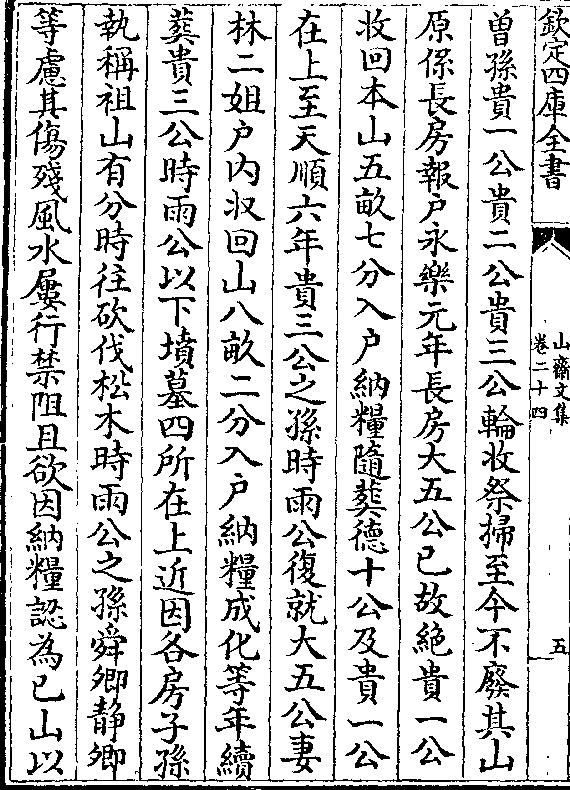 欽定四庫全書
山齋文集
卷二十四
五
曾孫貴一公貴二公貴三公輪收祭掃至今不廢其山
原係長房報户永樂元年長房大五公已故絶貴一公
收回本山五畝七分入户納糧隨葬德十公及貴一公
在上至天順六年貴三公之孫時雨公復就大五公妻
林二姐户内收回山八畝二分入户納糧成化等年續
葬貴三公時雨公以下墳墓四所在上近因各房子孫
執稱祖山有分時往砍伐松木時雨公之孫舜卿静卿
等慮其傷殘風水屢行禁阻且欲因納糧認為已山以